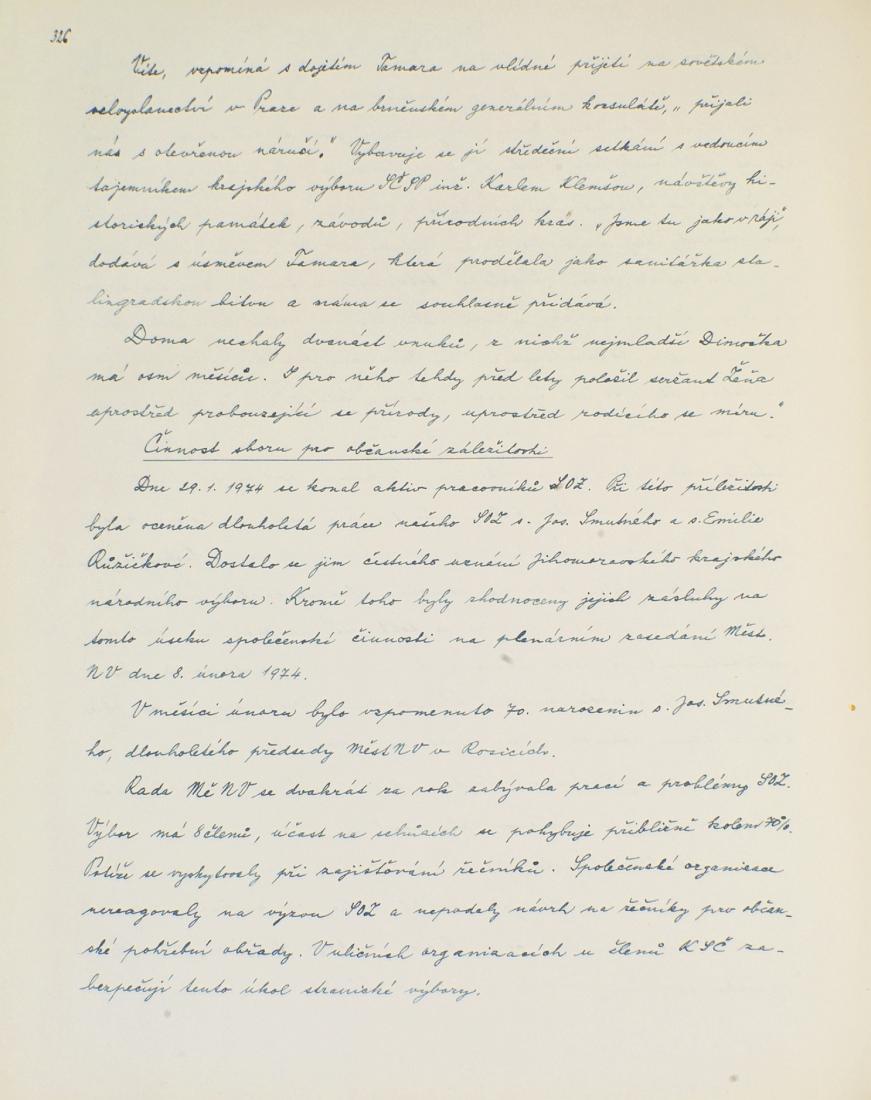 326
Víte, vzpomíná s dojetím Tamara na vlídné přijetí na sovětském
velvyslanectví v Praze a na brněnském generálním konsulátě, „přijali
nás s otevřenou náručí." Vybavuje se jí středeční setkání s vedoucím
tajemníkem krajského výboru SČSP inž. Karlem Klemšou, návštěvy hi-
storických památek, závodů, přírodních krás. „Jsme tu jako v ráji",
dodává s úsměvem Tamara, která prodělala jako sanitářka sta-
lingradskou bitvu a máma se souhlasně přidává.
Doma nechaly dvanáct vnuků, z nichž nejmladší Dimočka
má osm měsíců. I pro něho tehdy před lety položil seržant Žěňa
uprostřed probouzející se přírody, uprostřed rodícího se míru."
Činnost sboru pro občanské záležitosti
Dne 29.1. 1974 se konal aktiv pracovníků SOZ. Při této příležitosti
byla oceněna dlouholetá práce našeho SOZ s. Jos. Smutného a s. Emilie
Růžičkové. Dostalo se jim čestného uznání Jihomoravského krajského
národního výboru. Kromě toho byly zhodnoceny jejich zásluhy na
tomto úseku společenské činnosti na plenárním zasedání Měst.
NV dne 8. února 1974.
V měsíci únoru bylo vzpomenuto 70. narozenin s. Jos. Smutné-
ho, dlouholetého předsedy MěstNV v Rosicích.
Rada MěNV se dvakrát za rok zabývala prací a problémy SOZ.
Výbor má 8 členů, účast na schůzích se pohybuje přibližně kolem 70%.
Potíže se vyskytovaly při zajišťování řečníků. Společenské organizace
nereagovaly na výzvu SOZ a nepodaly návrh na řečníky pro občan-
ské pohřební obřady. V uličních organizacích u členů KSČ za-
bezpečují tento úkol stranické výbory.